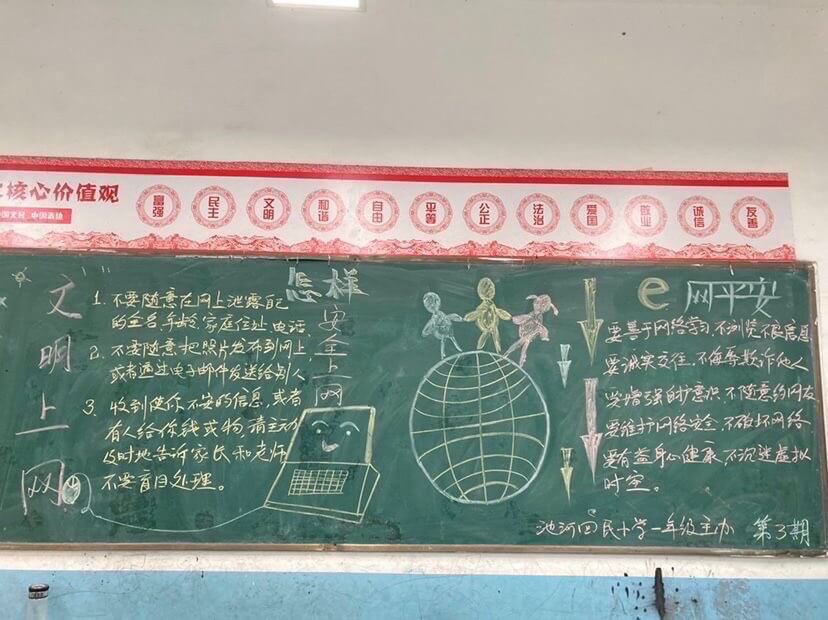 核心价值观
富强
民主
文明
和谐
自由
平等
公正
法治
爱国
敬业
诚信
友善
文明上网
1. 不要随意在网上泄露自己
的全名年龄,家庭住址,电话
2. 不要随意把照片发布到网上,
或者通过电子邮件发送给别人
3. 收到使你不安的信息,或者
有人给你钱或物,请主动
及时地告诉家长和老师
不要盲目处理。
怎样
安全上网
e 网平安
要善于网络学习 不浏览不良信息
要诚实交往,不侮辱欺诈他人
要增强自护意识 不随意约网友
要维护网络安全 不破坏网络
要有益身心健康,不沉迷虚拟
时空。
池河回民小学一年级主办 第3期